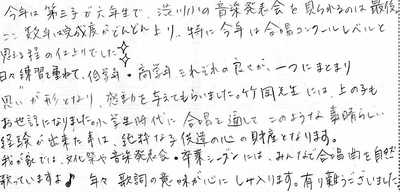 今年は第三子が六年生で、渋川小の音楽発表会を見られるのは最後
ここ数年は完成度がどんどん上り、特に今年は合唱コンクールレベルと
思える程の仕上りでした
日々練習を重ねて、低学年・高学年それぞれの良さが、一つにまとまり
思いが形となり、感動を与えてもらいました。竹岡先生には、上の子も
お世話になりました。小学生時代に合唱を通してこのような素晴らしい
経験が出来た事は、純粋な子供達の心の財産となります。
我が家では、文化祭や音楽発表会・卒業シーズンには、みんなで合唱曲を自然
歌っていますよ♪ 年々歌詞の意味が心にしみ入ります。有難うございました